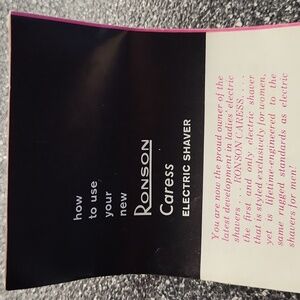 how
to use
your
new
RONSON
Caress
ELECTRIC SHAVER
You are now the proud owner of the
latest development in ladies' electric
shavers . . . RONSON CARESS. . . .
the first and only electric shaver
that is styled exclusively for women,
yet is lifetime-engineered to the
same rugged standards as electric
shavers for men.